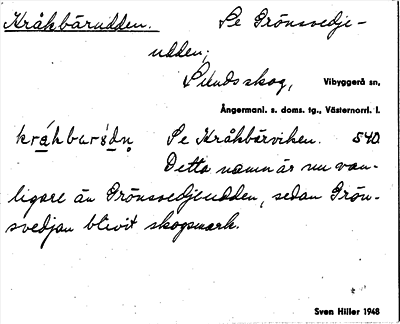 Kråkbärudden. Se Grönsvedje-
udden,
Sundsskog, Vibyggerå sn,
Ångermanl. s. doms. tg., Västernorrl. l.
Se Kråkbärviken. S40.
Detta namn är nu van-
ligare än Grönsvedjeudden, sedan Grön-
svedjan blivit skogsmark.
Sven Hiller 1948